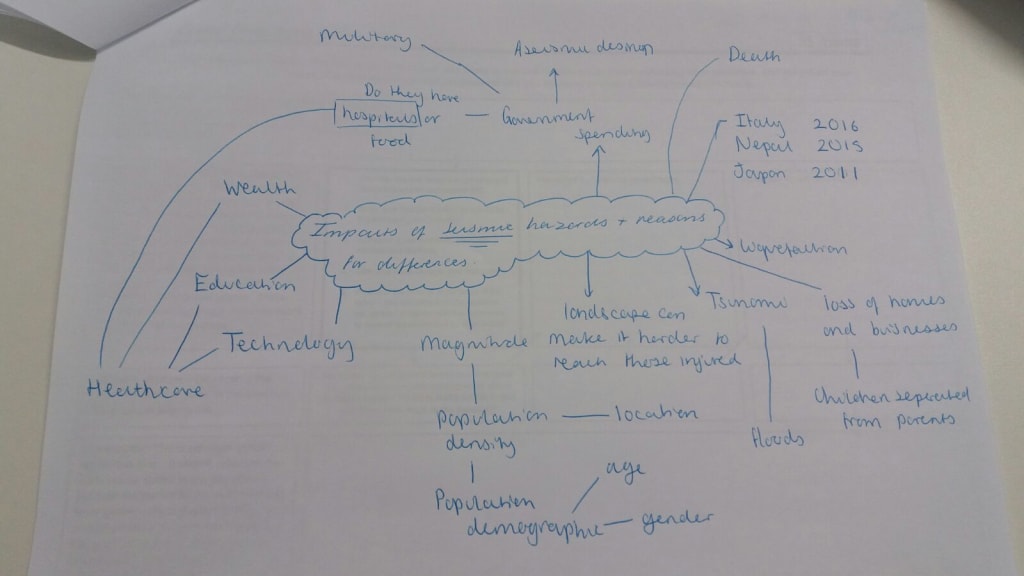 Military
Aseismic design
Death
Do they have
hospitals or
food
Government
spending
Italy 2016
Nepal 2015
Japan 2011
Wealth
Impacts of seismic hazards + reasons
for differences.
Education
Technology
Healthcare
Magnitude
landscape can
make it harder to
reach those injured
Tsunami
liquefaction
loss of homes
and businesses
Children seperated
from parents
floods
Population
density
location
Population
demographic
age
gender